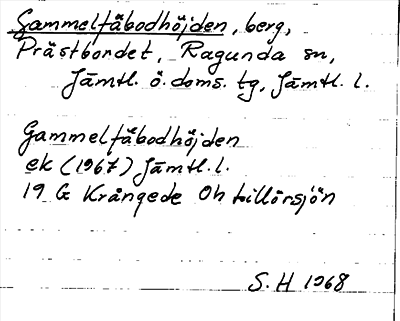 Gammelfäbodhöjden, berg,
Prästbordet, Ragunda sn,
Jämtl. ö. doms. tg, Jämtl. l.
Gammelfäbodhöjden
ek (1967) Jämtl. l.
19 G Krångede Oh
S. H 1968